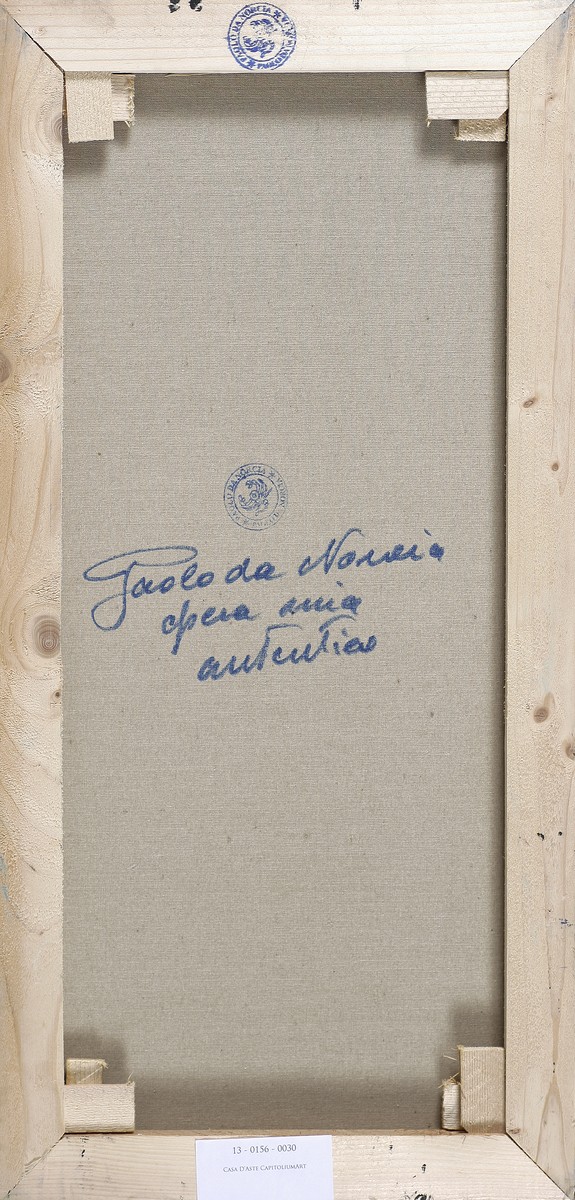 PAOLO DA NORCIA
PAOLO DA NORCIA
Paolo da Norcia
opera mia
autentica
13 - 0156 - 0030
Casa D'Arte CapitoliumArt